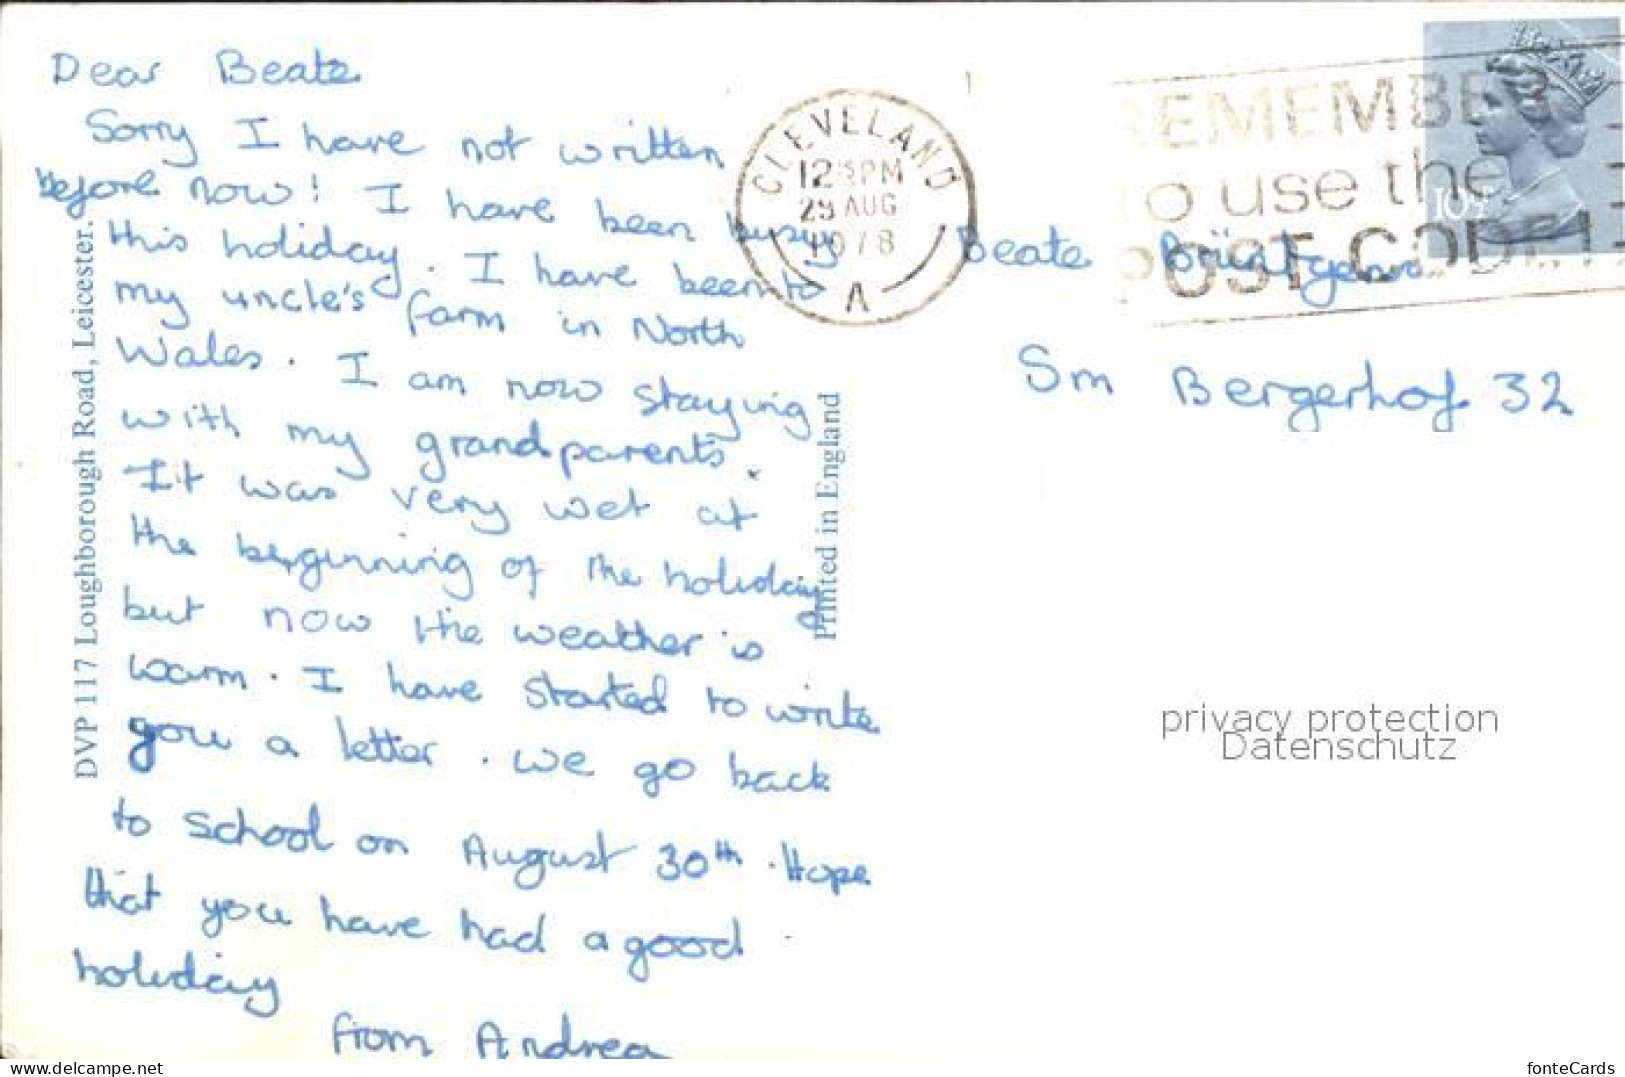 Dear Beate
Sorry I have not written
before now! I have been busy
this holiday. I have been to
my uncle's farm in North
Wales. I am now staying
with my grandparents.
It was very wet at
the beginning of the holiday
but now the weather is
warm. I have started to write
you a letter. We go back
to school on August 30th. Hope
that you have had a good
holiday
from Andrea
DVP 117 Loughborough Road, Leicester.
Printed in England
CLEVELAND
12 PM
29 AUG
1978
A
REMEMBER
to use the
POST CODE!
10½
Beate
Sm Bergerhof 32
privacy protection
Datenschutz
www.delcampe.net
fonteCards